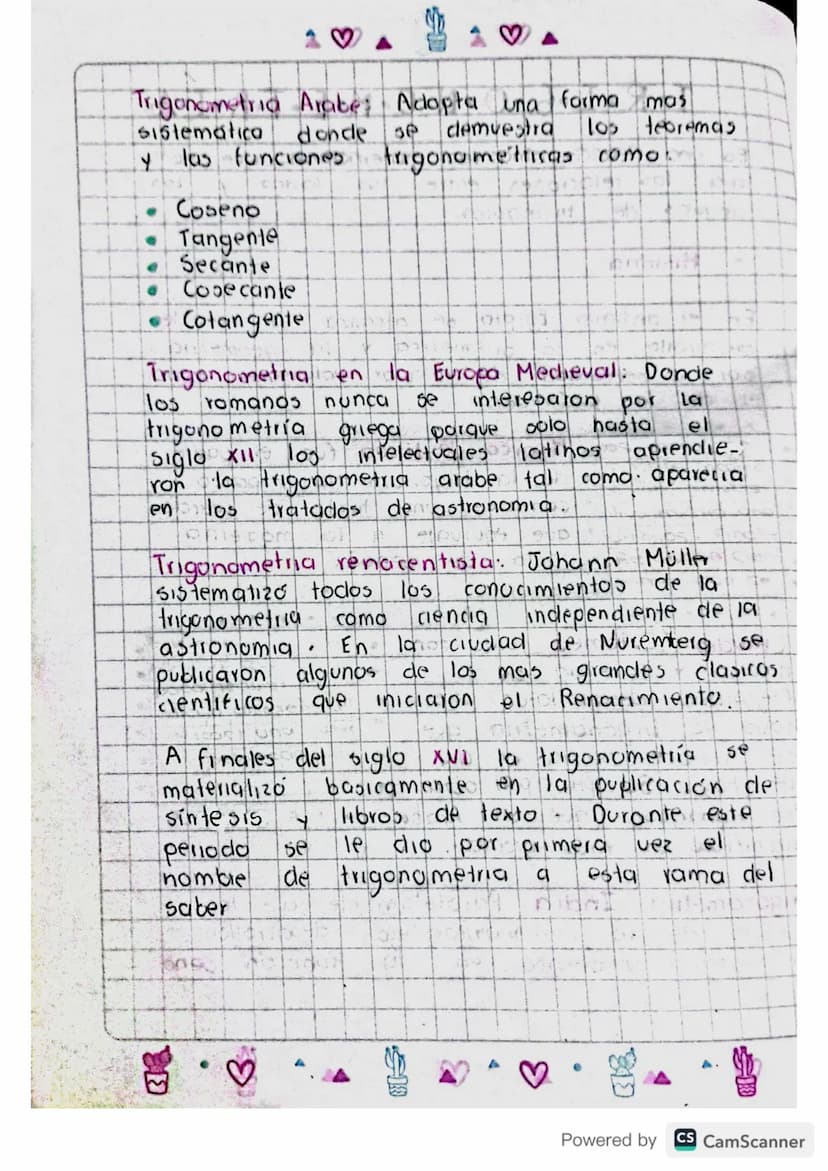 Trigonometria Arabe: Adopta una forma mas
sistematica donde se demuestra los teoremas
y las funciones trigonométricas como:
• Coseno
• Tangente
• Secante
• Cosecante
• Cotangente
Trigonometria en la Europa Medieval: Donde
los romanos nunca se interesaron por la
trigonometría griega porque solo hasta el
siglo XII los intelectuales latinos aprendie-
ron la trigonometria arabe tal como aparecia
en los tratados de astronomia.
Trigonometria renacentista: Johann Müller
sistematizó todos los conocimientos de la
trigonometria como ciencia independiente de la
astronomia. En la ciudad de Nuremterg se
publicaron algunos de los mas grandes clasicos
cientificos que iniciaron el Renacimiento.
A finales del siglo XVI la trigonometría se
materializó basicamente en la publicación de
síntesis y libros de texto. Durante este
periodo se le dio por primera vez el
nombre de trigonometria a esta rama del
saber
Powered by CS CamScanner